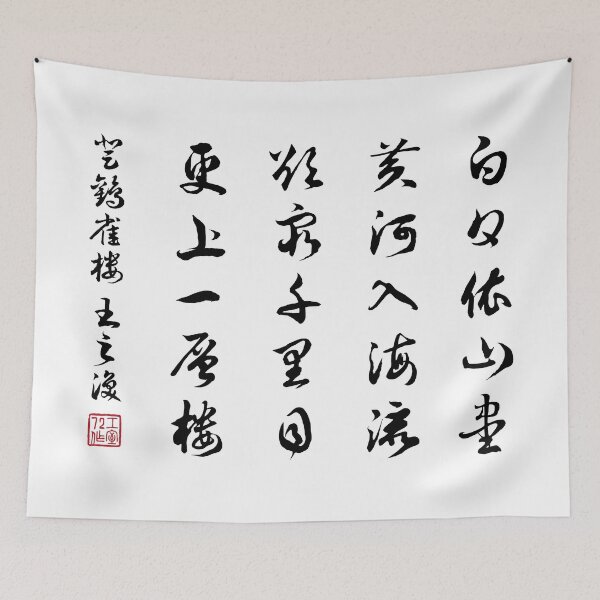 白日依山尽
黄河入海流
欲穷千里目
更上一层楼
登鹳雀楼 王之涣